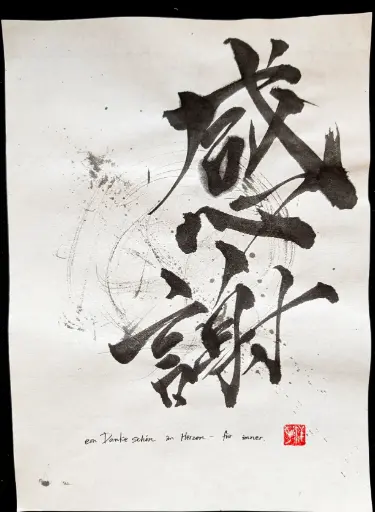 感
謝
ein Dankeschön im Herzen - für immer